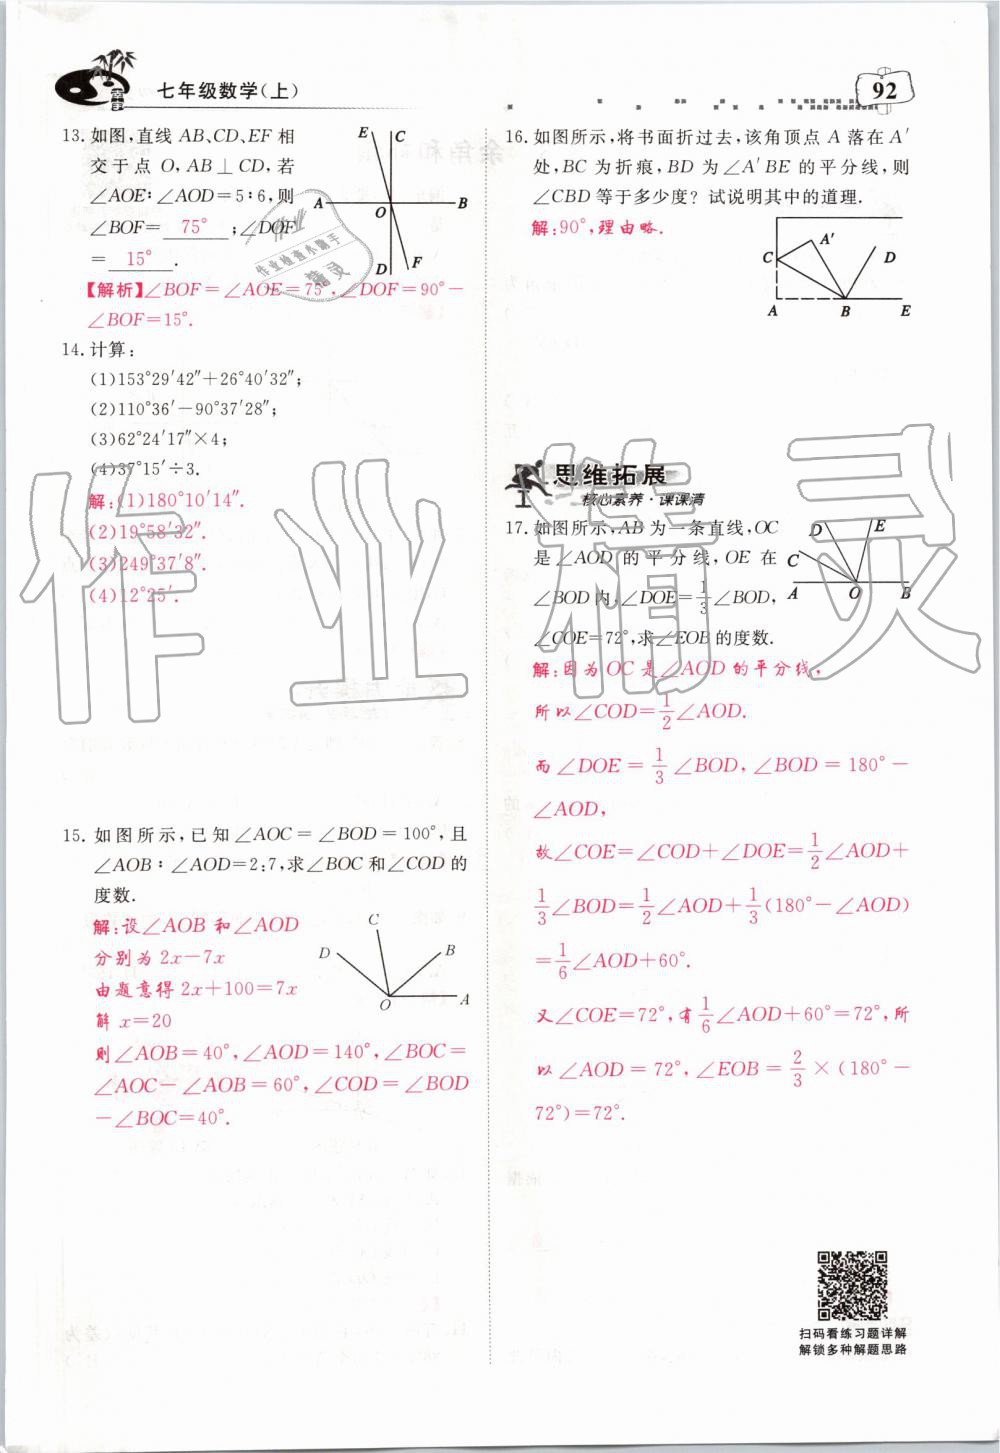 七年级数学(上)
92
13. 如图,直线 AB、CD、EF 相
交于点 O,AB⊥CD,若
∠AOE∶∠AOD=5∶6,则
∠BOF= 75° ;∠DOF
= 15° .
【解析】∠BOF=∠AOE=75°,∠DOF=90°-
∠BOF=15°.
E C
A O B
D F
14. 计算:
(1)153°29′42″+26°40′32″;
(2)110°36′-90°37′28″;
(3)62°24′17″×4;
(4)37°15′÷3.
解:(1)180°10′14″.
(2)19°58′32″.
(3)249°37′8″.
(4)12°25′.
15. 如图所示,已知∠AOC=∠BOD=100°,且
∠AOB∶∠AOD=2:7,求∠BOC和∠COD的
度数.
解:设∠AOB 和∠AOD
分别为 2x-7x
由题意得 2x+100=7x
解 x=20
则∠AOB=40°,∠AOD=140°,∠BOC=
∠AOC-∠AOB=60°,∠COD=∠BOD
-∠BOC=40°.
C
D B
O A
16. 如图所示,将书面折过去,该角顶点 A 落在 A′
处,BC 为折痕,BD 为∠A′BE 的平分线,则
∠CBD等于多少度?试说明其中的道理.
解:90°,理由略.
A′
C D
A B E
思维拓展
核心素养·课课清
17. 如图所示,AB 为一条直线,OC
是∠AOD 的平分线,OE 在
∠BOD内,∠DOE=1/3∠BOD,
∠COE=72°,求∠EOB的度数.
D E
C
A O B
解:因为OC是∠AOD的平分线,
所以∠COD=1/2∠AOD.
而∠DOE=1/3∠BOD,∠BOD=180°-
∠AOD,
故∠COE=∠COD+∠DOE=1/2∠AOD+
1/3∠BOD=1/2∠AOD+1/3(180°-∠AOD)
=1/6∠AOD+60°.
又∠COE=72°,有1/6∠AOD+60°=72°,所
以∠AOD=72°,∠EOB=2/3×(180°-
72°)=72°.
扫码看练习题详解
解锁多种解题思路
作业精灵
作业
作业检查小助手
精灵